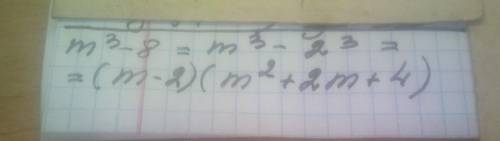 m³-8 = m³- 2³ =
=(m-2)(m²+2m+4)